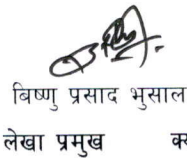 बिष्णु प्रसाद भुसाल
लेखा प्रमुख